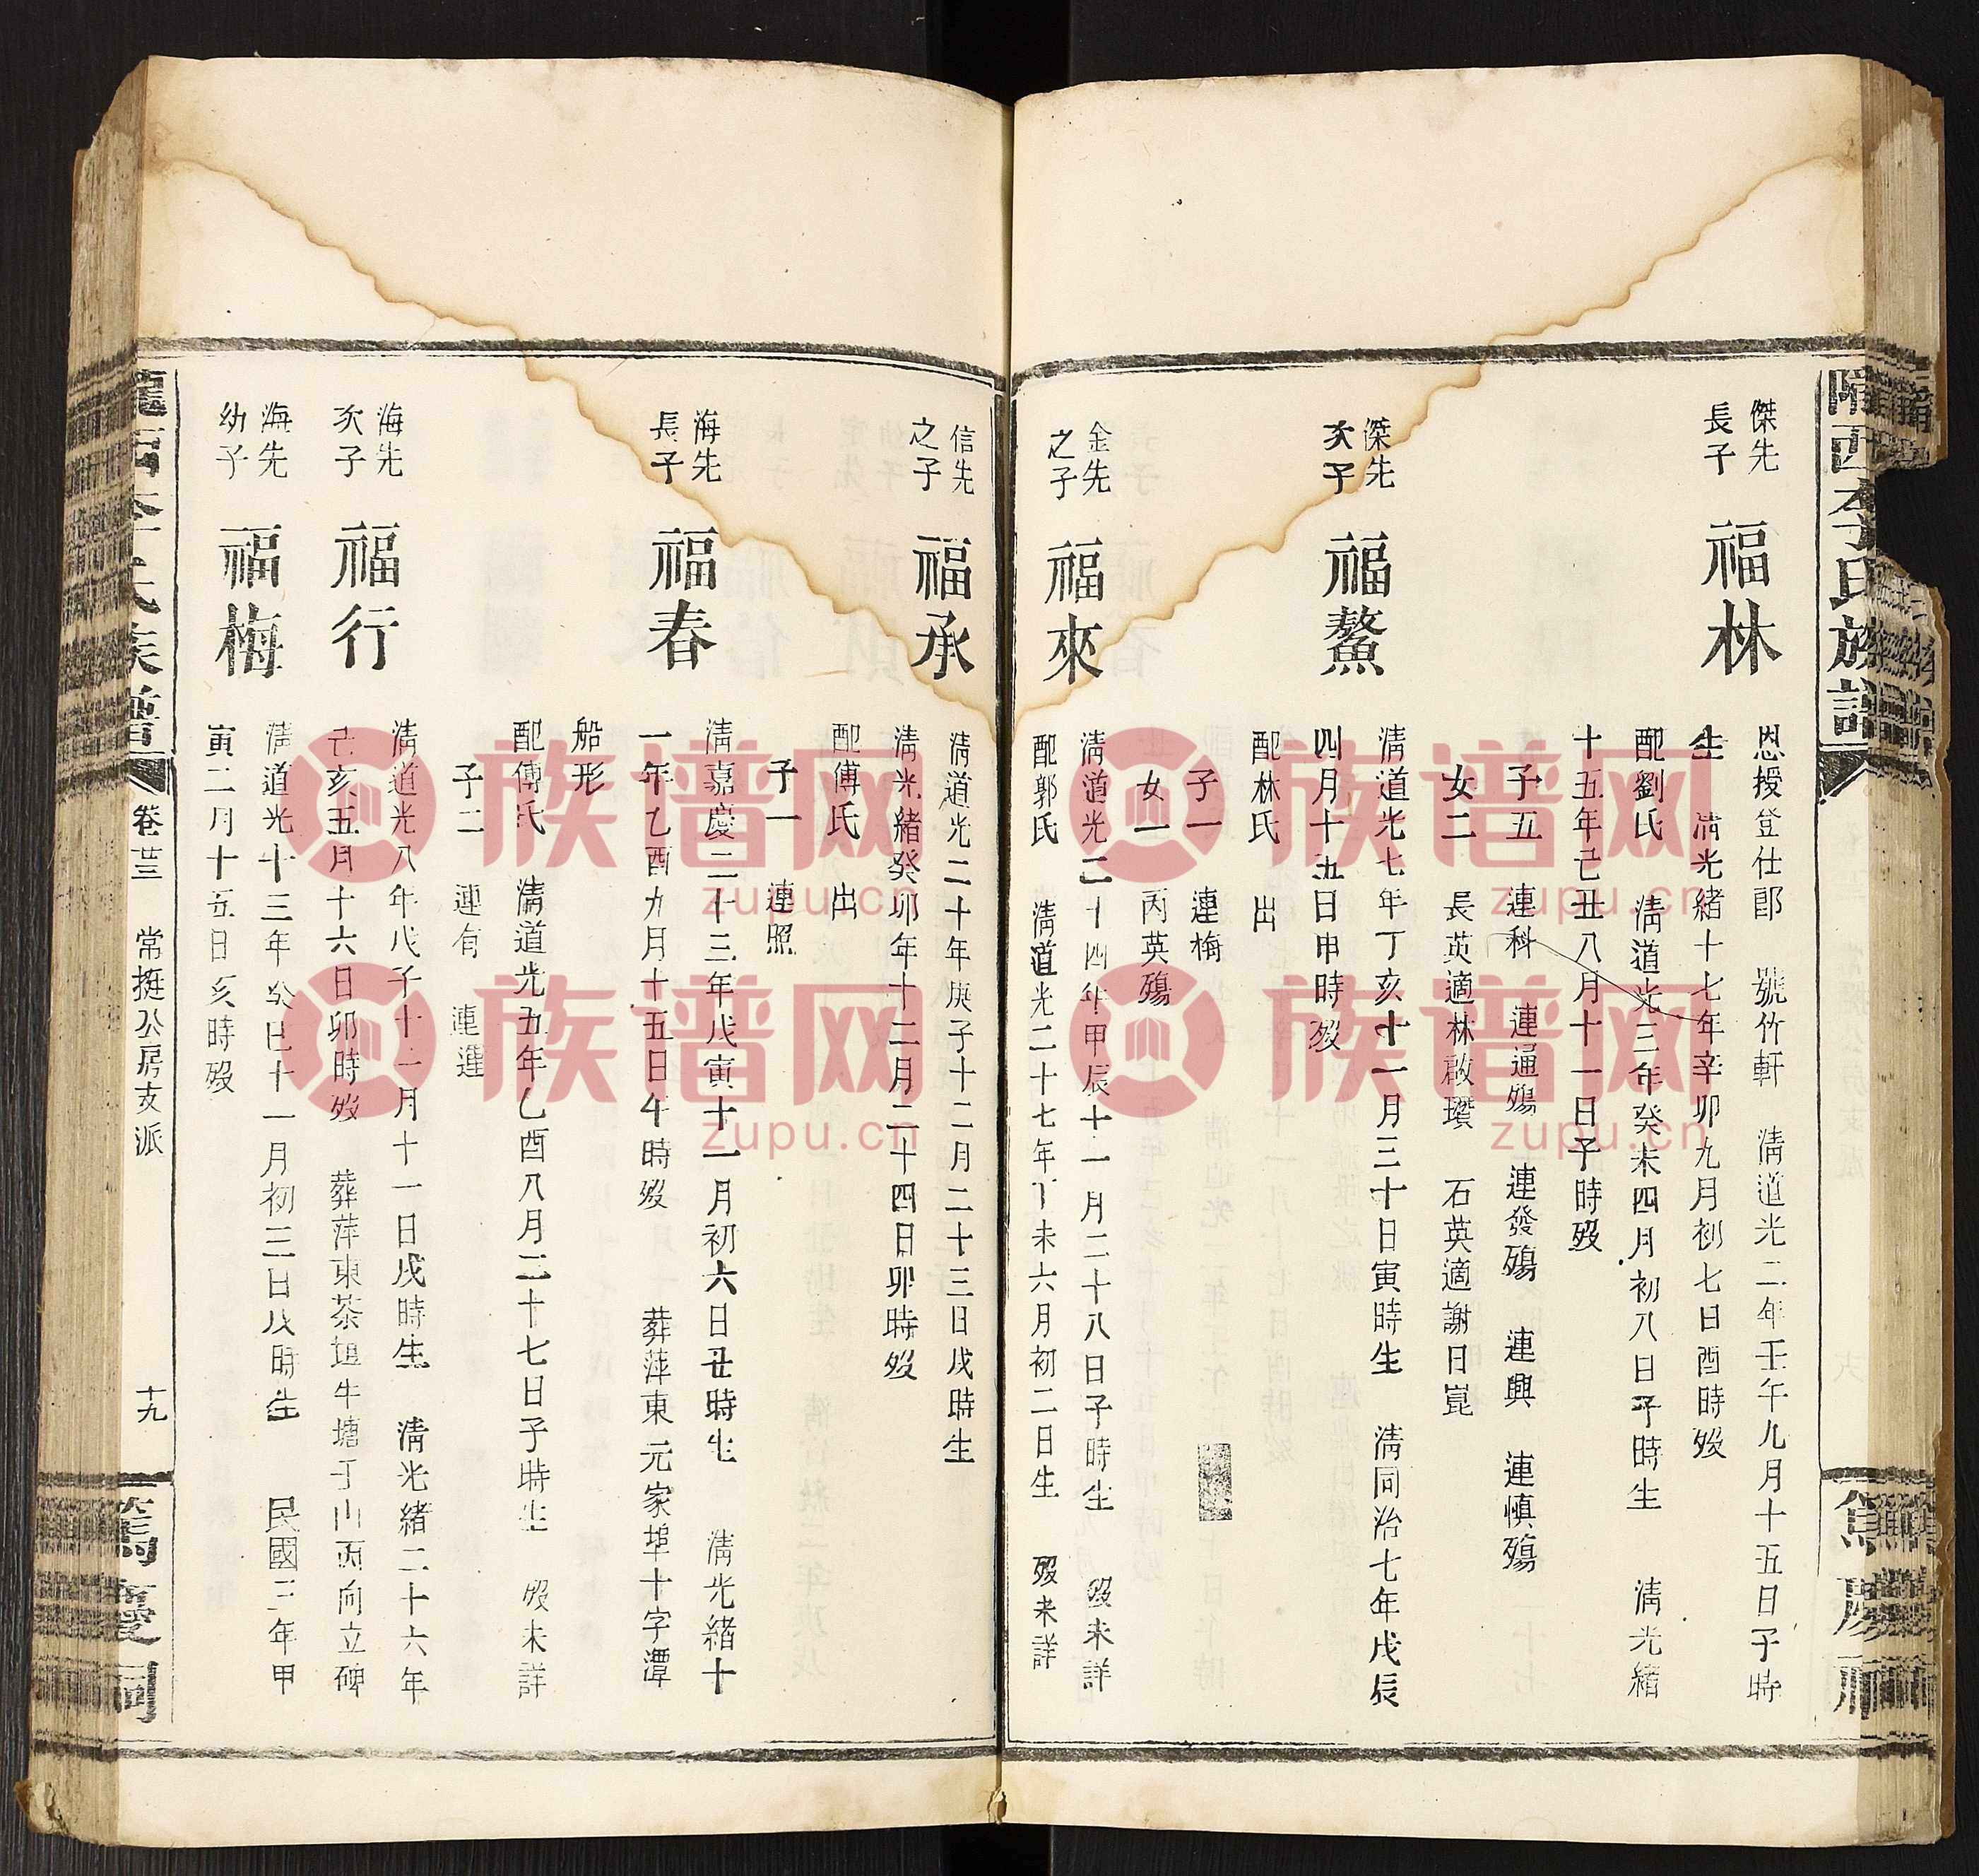 隴西李氏族譜
傑先
長子
福林
恩授登仕郎 號竹軒 清道光二年壬午九月十五日子時
生 清光緒十七年辛卯九月初七日酉時歿
配劉氏 清道光三年癸未四月初八日子時生 清光緒
十五年己丑八月十一日子時歿
子五 連科 連通殤 連發殤 連興 連慎殤
女二 長英適林啟瓚 石英適謝日崑
傑先
次子
福鰲
清道光七年丁亥十一月三十日寅時生 清同治七年戊辰
四月十五日申時歿
配林氏 出
子一 連梅
女一 丙英殤
金先
之子
福來
清道光二十四年甲辰十一月二十八日子時生 歿未詳
配郭氏 清道光二十七年丁未六月初二日生 歿未詳
信先
之子
福承
清道光二十年庚子十二月二十三日戌時生
清光緒癸卯年十二月二十四日卯時歿
配傅氏 出
子一 連照
海先
長子
福春
清嘉慶二十三年戊寅十一月初六日丑時生 清光緒十
一年乙酉九月十五日午時歿 葬萍東元家埠十字潭
船形
配傅氏 清道光五年乙酉八月二十七日子時生 歿未詳
子二 連有 連運
海先
次子
福行
清道光八年戊子十一月十一日戌時生 清光緒二十六年
己亥五月十六日卯時歿 葬萍東茶坦牛塘子山丙向立碑
海先
幼子
福梅
清道光十三年癸巳十一月初三日戌時生 民國三年甲
寅二月十五日亥時歿
隴西李氏族譜
卷卅三 常挺公房支派
十九
篤慶祠
族谱网
zupu.cn
族谱网
zupu.cn
族谱网
zupu.cn
族谱网
zupu.cn